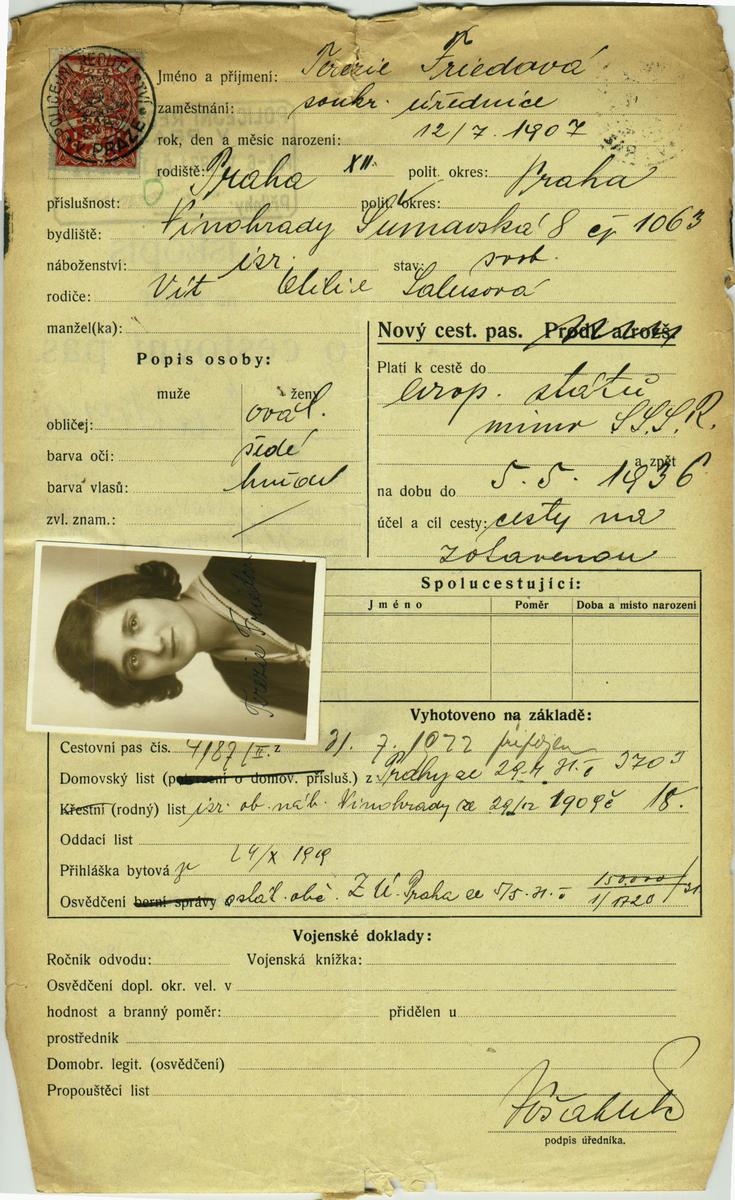 POLICEJNÍ ŘEDITELSTVÍ
V PRAZE
Jméno a příjmení: Terezie Friedová
zaměstnání: soukr. úřednice
rok, den a měsíc narození: 12/7. 1907
rodiště: Praha XII polit. okres: Praha
příslušnost: polit. okres:
bydliště: Vinohrady Šumavská 8 čp 1063
náboženství: izr. stav: svob.
rodiče: Vít Salusová
manžel(ka):
Nový cest. pas. Prodl. a rozš.
Popis osoby:
muže ženy
obličej: ovál.
barva očí: šedé
barva vlasů: hnědé
zvl. znam.:
Platí k cestě do
evrop. států
mimo S.S.S.R.
a zpět
na dobu do 5. 5. 1936
účel a cíl cesty: cesty na
zotavenou
Terezie
Spolucestující:
Jméno Poměr Doba a místo narození
Vyhotoveno na základě:
Cestovní pas čís. 4187/II. z 31. 7. 1922
Domovský list (potvrzení o domov. přísluš.) z Prahy ze
Křestní (rodný) list izr. ob. náb. Vinohrady ze 1909 č 18.
Oddací list
Přihláška bytová 24/X 1919
Osvědčení berní správy Z Ú. Praha ze 5/5. 31.
Vojenské doklady:
Ročník odvodu: Vojenská knížka:
Osvědčení dopl. okr. vel. v
hodnost a branný poměr: přidělen u
prostředník
Domobr. legit. (osvědčení)
Propouštěcí list
podpis úředníka.